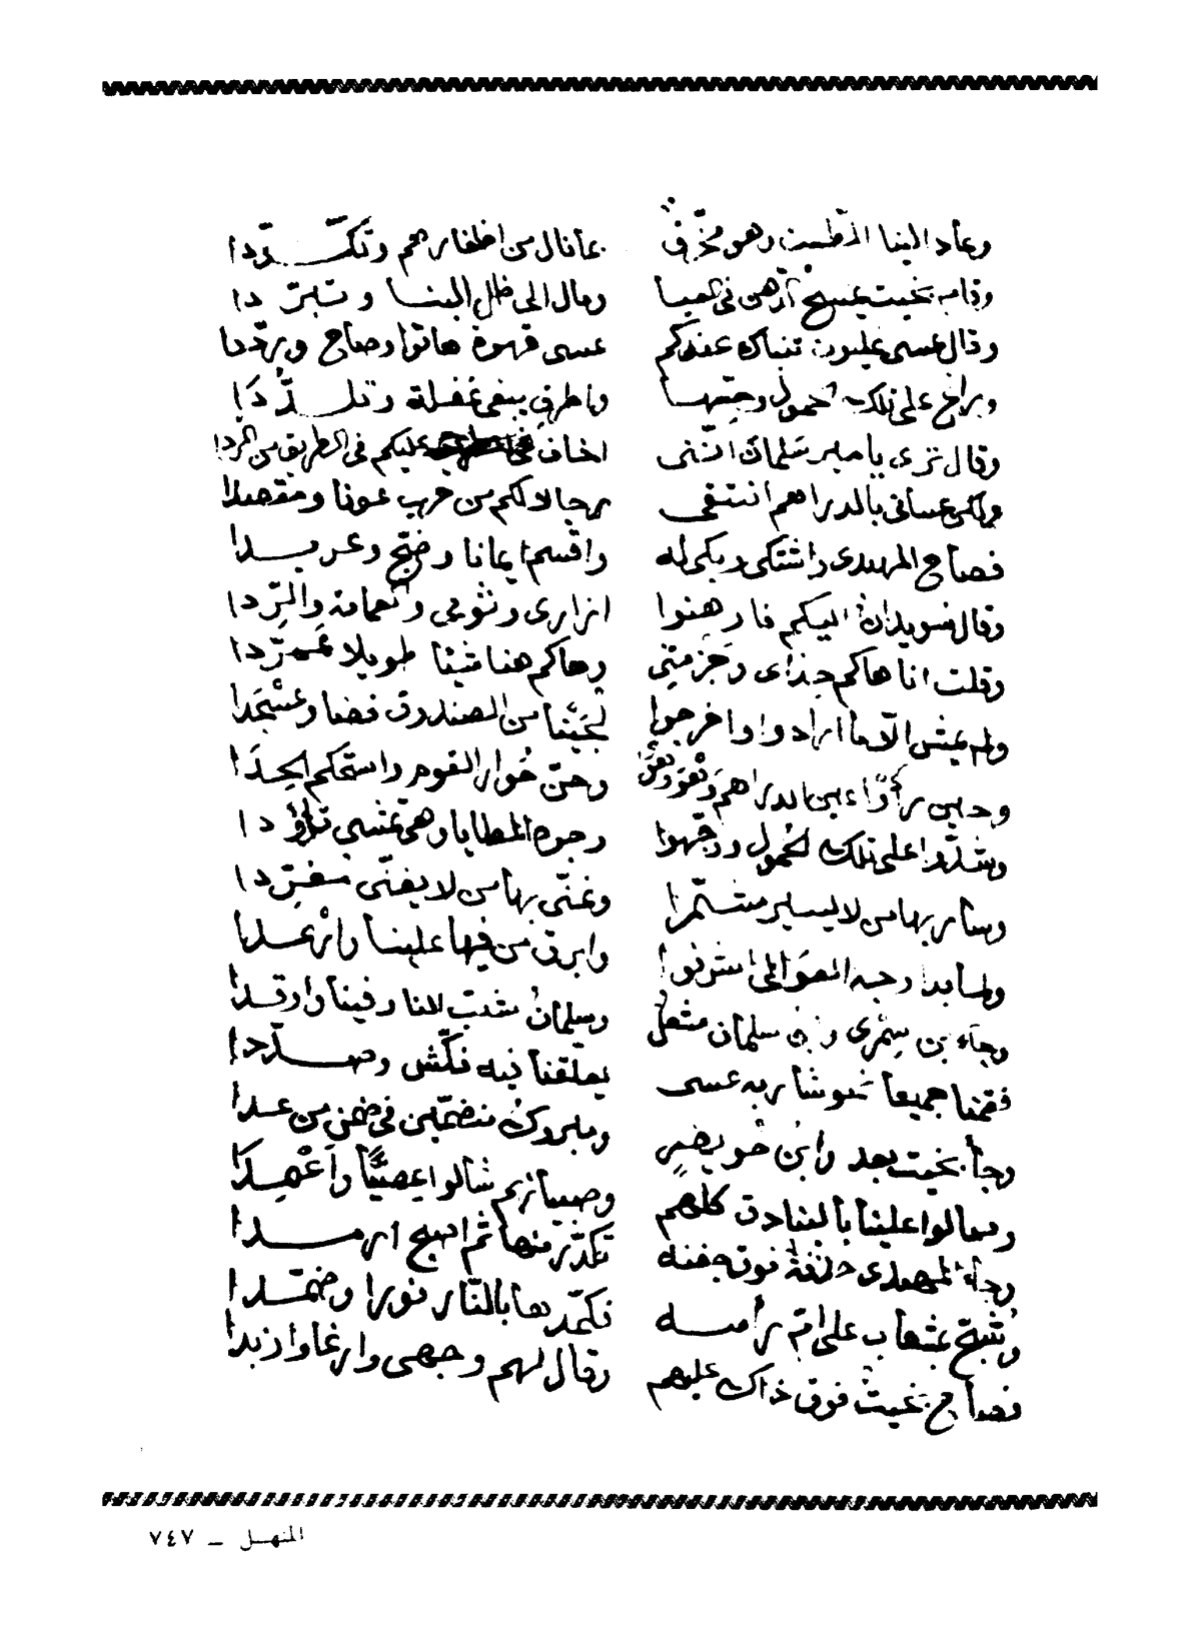 وعاد الينا القطين وهو مخرف بما نال من اظفارهم وتكددا
وقام بخيت يمسح في العبا ومال الى ظل البنا وتبردا
وقال عسى غليون تنباك عندكم عسى قهوة هاتوا وصاح ورددا
وراح على تلك الحمول وجتها واطرق يبغي غفلة وتلددا
وقال ترى يا مير سلمان انني اخاف عليكم في الطريق من الردا
ولكن عسانى بالدراهم انتقى رجالا لكم من حرب عونا ومقصدا
فصاح المهدى واشتكى وبكى له واقسم ايمانا وضج وعربدا
وقال فسويدان اليكم فارهنوا ازارى وثوبى والعمامة والردا
وقلت انا هاكم حذاى وجزمتى وهاكم هنا شيئا طويلا ممردا
ولم يمش الا ما ارادوا واخرجوا لجيثا من الصندوق فضا وعسجدا
وحين رأوا عين الدراهم وحن حوار القوم واستحكم الحدا
وشدوا على تلك الحمول ووجهوا وجوه المطايا وهى تمشى تأودا
وسار بها من لا يسير مشمرا وغنى بها من لا يغنى مغردا
ولما بدا وجه العوالى اشرفوا وابرق من فيها علينا وارعدا
وجاء بن سمرى وزن سلمان مشعل وسلمان شب النار فينا واوقدا
فقمنا جميعا نحو شاربه عسى يعلقنا فيه فكش وهددا
وجا بخيت بعد وابن خويضر ومبروك منضمين في ضمن من عدا
ومالوا علينا بالبنادق كلهم وصبيانهم شالوا عصيا واعمدا
وجاء المهدى فوق جفنه تكدر منها ثم اصبح ارمدا
وشج بمشعاب على ام رأسه فكمدها بالنار نورا وضمدا
فصاح بخيت فوق ذاك عليهم وقال لهم وجهى وارغا وازبدا
المنهل ــ ٧٤٧